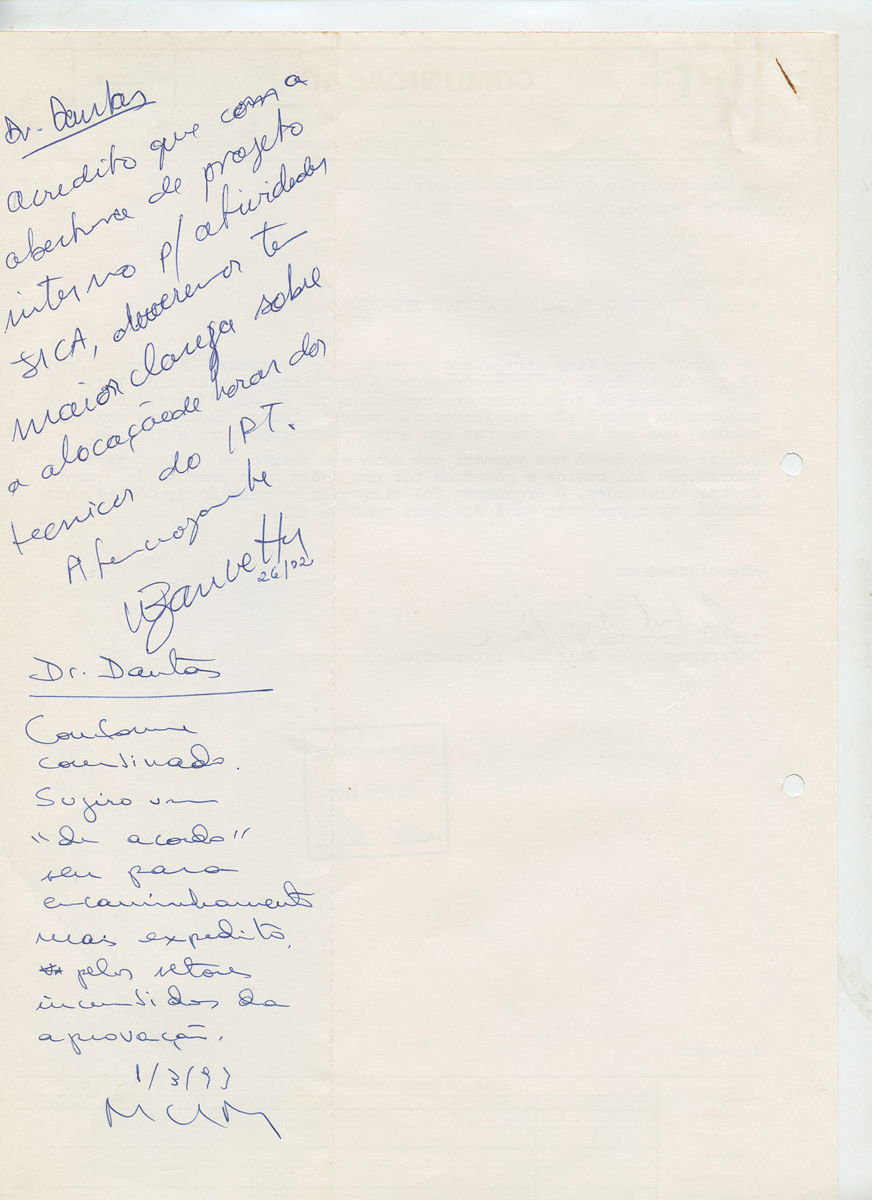 Dr. Dantas
acredito que com a
abertura de projeto
interno p/ atividades
SICA, deveremos ter
maior clareza sobre
a alocação de horas dos
tecnicos do IPT.
Atenciosamente
26/02
Dr. Dantas
Conforme
combinado.
Sugiro um
"de acordo"
seu para
encaminhamento
mais expedito,
pelos setores
incumbidos da
aprovação.
1/3/93